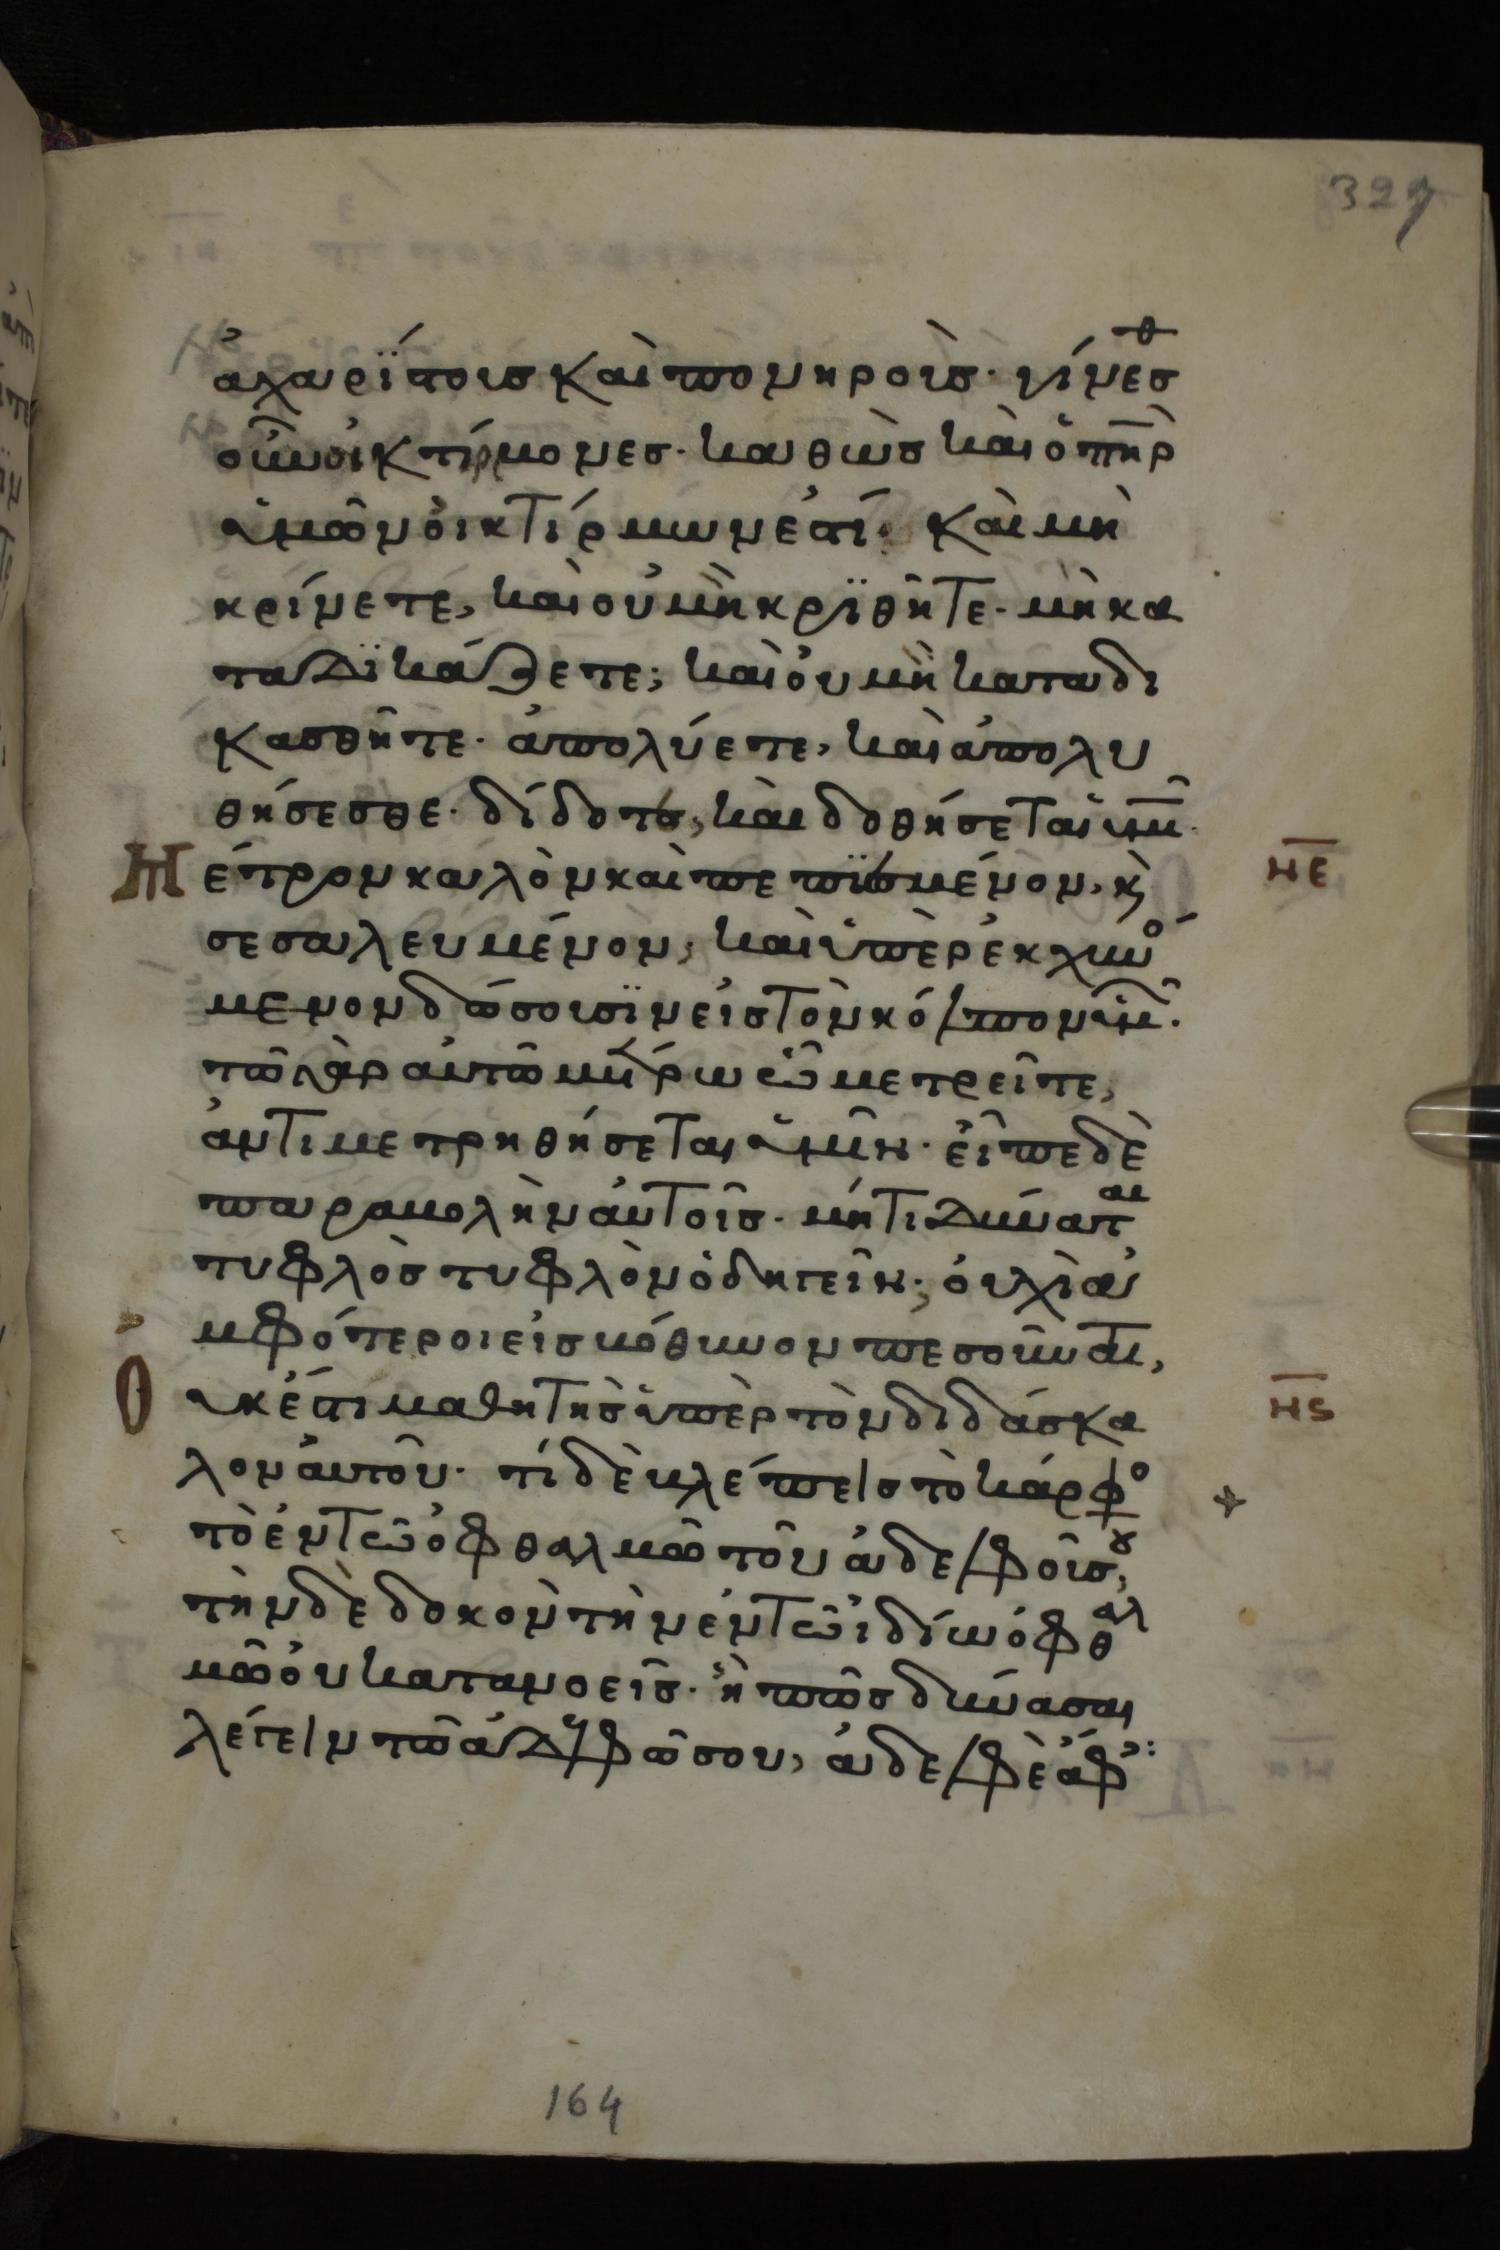 327
ἀχαρΐστοισ καὶ πονηροῖσ· γίνεσ^θ
οὖν οἰκτίρμονεσ· καθὼσ καὶ ὁ π̅η̅ρ̅
ὑμῶν οἰκτίρμων ἐστί· καὶ μὴ
κρίνετε, καὶ οὐ μὴ κριθῆτε· μὴ κα
ταδϊκάζετε; καὶ οὐ μὴ καταδι
κασθῆτε· ἀπολύετε, καὶ ἀπολυ
θήσεσθε· δίδοτε, καὶ δοθήσεται ὑμ̅·
Μέτρον καλὸν καὶ πεπϊεσμένον, κ̀ ΗΕ
σεσαλευμένον; καὶ ὑπὲρ ἐκχυνό
μενον δώσουσϊν εἰσ τὸν κόλπον ὑμ̑·
τῶ γὰρ αὐτῶ μέτρω ὧ μετρεῖτε,
ἀντιμετρηθήσεται ὑμῖν· εἶπε δὲ
παραβολὴν αὐτοῖσ· μήτι δύνατ^αι
τυφλὸσ τυφλὸν ὁδηγεῖν; οὐχὶ ἀ
μφότεροι εἰσ βόθυνον πεσοῦνται,
Οὐκ ἔστι μαθητὴσ ὑπὲρ τὸν διδάσκα ΗϚ
λον αὐτοῦ· τί δὲ βλέπεισ τὸ κάρφ^ο
τὸ ἐν τῶ ὀφθαλμῶ τοῦ ἀδελφοῦ σ^ου,
τὴν δὲ δοκὸν τὴν ἐν τῶ ἰδίω ὀφθ^αλ
μῶ οὐ κατανοεῖσ· ἢ πῶσ δύνασαι
λέγειν τῶ ἀδελφῶ σου, ἀδελφὲ ἄφ:
164